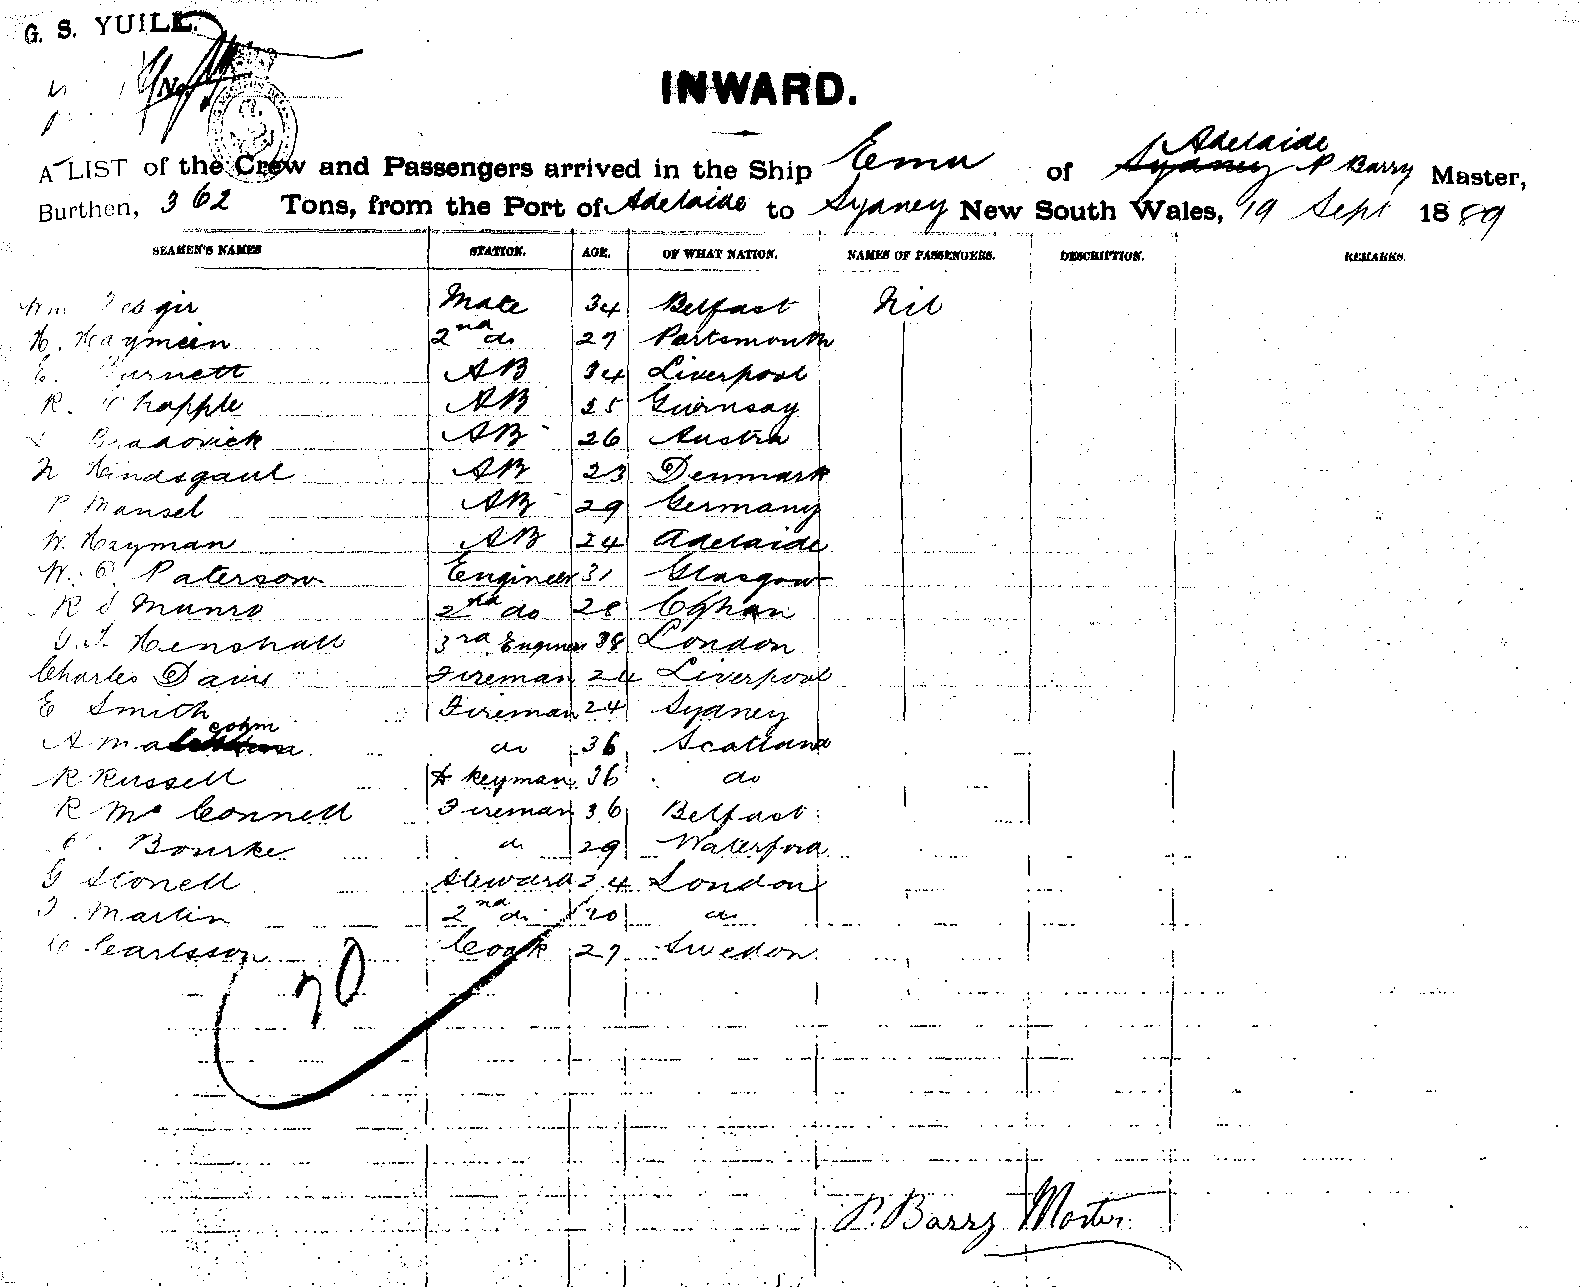 G. S. YUILL.
INWARD.
Adelaide
A LIST of the Crew and Passengers arrived in the Ship Emu of Sydney P Barry Master,
Burthen, 362 Tons, from the Port of Adelaide to Sydney New South Wales, 19 Sept 1889
SEAMEN'S NAMES STATION. AGE. OF WHAT NATION. NAMES OF PASSENGERS. DESCRIPTION. REMARKS.
Wm Mate 34 Belfast Nil
H. Haymein 2nd do 27 Portsmouth
E. AB 34 Liverpool
R. Chapple AB 25 Guernsay
AB 26 Austria
N Hindsgaul AB 23 Denmark
P Mansel AB 29 Germany
W. Hayman AB 24 Adelaide
W. Paterson Engineer 31 Glasgow
R S Munro 2nd do 28
Henshall 3rd Engineer 38 London
Charles Davis Fireman 24 Liverpool
E Smith Fireman 24 Sydney
A Macolm do 36 Scotland
R Russell keyman 36 do
R McConnell Fireman 36 Belfast
Bourke do 29 Waterford
G Stonell Steward 24 London
J. Martin 2nd do 20 do
C Carlsson Cook 27 Swedon
20
P. Barry Master